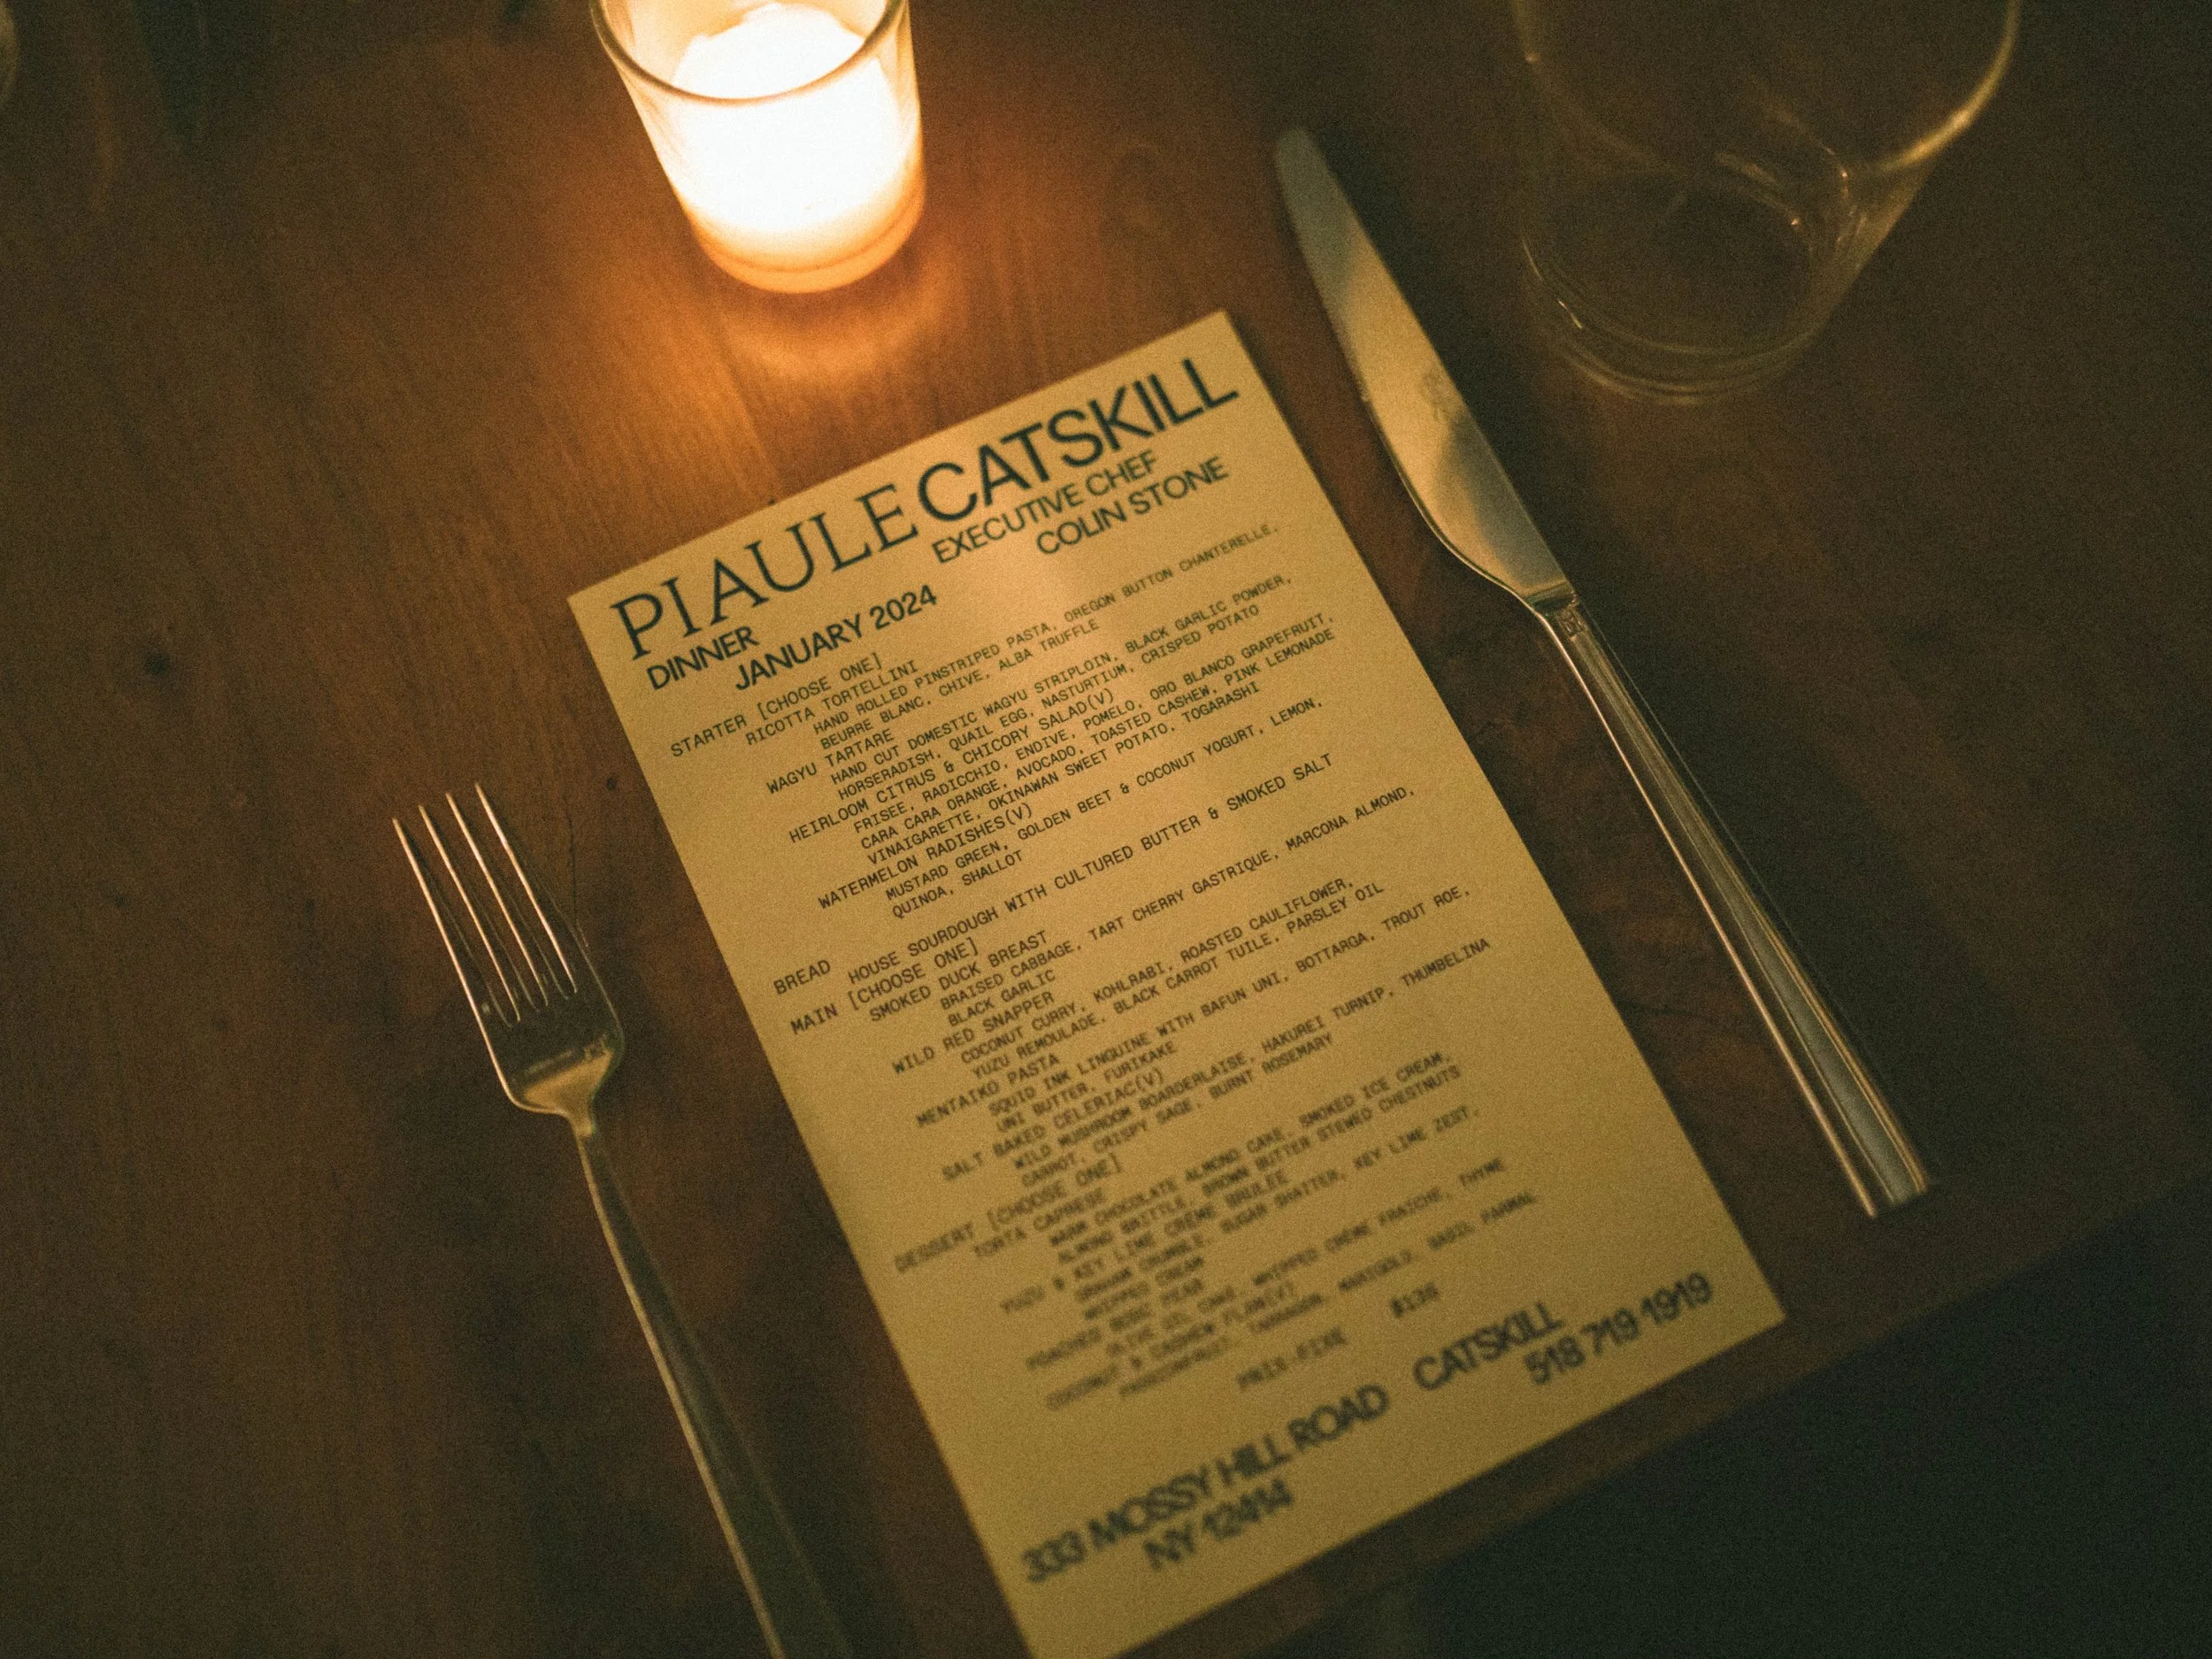 PIAULE CATSKILL
EXECUTIVE CHEF
COLIN STONE
DINNER
JANUARY 2024
STARTER [CHOOSE ONE]
RICOTTA TORTELLINI
HAND ROLLED PINSTRIPED PASTA, OREGON BUTTON CHANTERELLE,
BEURRE BLANC, CHIVE, ALBA TRUFFLE
WAGYU TARTARE
HAND CUT DOMESTIC WAGYU STRIPLOIN, BLACK GARLIC POWDER,
HORSERADISH, QUAIL EGG, NASTURTIUM, CRISPED POTATO
HEIRLOOM CITRUS & CHICORY SALAD(V)
FRISEE, RADICCHIO, ENDIVE, POMELO, ORO BLANCO GRAPEFRUIT,
CARA CARA ORANGE, AVOCADO, TOASTED CASHEW, PINK LEMONADE
VINAIGARETTE, OKINAWAN SWEET POTATO, TOGARASHI
WATERMELON RADISHES(V)
MUSTARD GREEN, GOLDEN BEET & COCONUT YOGURT, LEMON,
QUINOA, SHALLOT
BREAD HOUSE SOURDOUGH WITH CULTURED BUTTER & SMOKED SALT
MAIN [CHOOSE ONE]
SMOKED DUCK BREAST
BRAISED CABBAGE, TART CHERRY GASTRIQUE, MARCONA ALMOND,
BLACK GARLIC
WILD RED SNAPPER
COCONUT CURRY, KOHLRABI, ROASTED CAULIFLOWER,
YUZU REMOULADE, BLACK CARROT TUILE, PARSLEY OIL
MENTAIKO PASTA
SQUID INK LINGUINE WITH BAFUN UNI, BOTTARGA, TROUT ROE,
UNI BUTTER, FURIKAKE
SALT BAKED CELERIAC(V)
WILD MUSHROOM BOARDERLAISE, HAKUREI TURNIP, THUMBELINA
CARROT, CRISPY SAGE, BURNT ROSEMARY
DESSERT [CHOOSE ONE]
TORTA CAPRESE
WARM CHOCOLATE ALMOND CAKE, SMOKED ICE CREAM,
ALMOND BRITTLE, BROWN BUTTER STEWED CHESTNUTS
YUZU & KEY LIME CRÈME BRULEE
GRAHAM CRUMBLE, SUGAR SHATTER, KEY LIME ZEST,
WHIPPED CREAM
POACHED BOSC PEAR
OLIVE OIL CAKE, WHIPPED CRÈME FRAICHE, THYME
COCONUT & CASHEW FLAN(V)
PASSIONFRUIT, MARIGOLD, BASIL
PRIX-FIXE
333 MOSSY HILL ROAD CATSKILL
NY 12414 518 719 1919